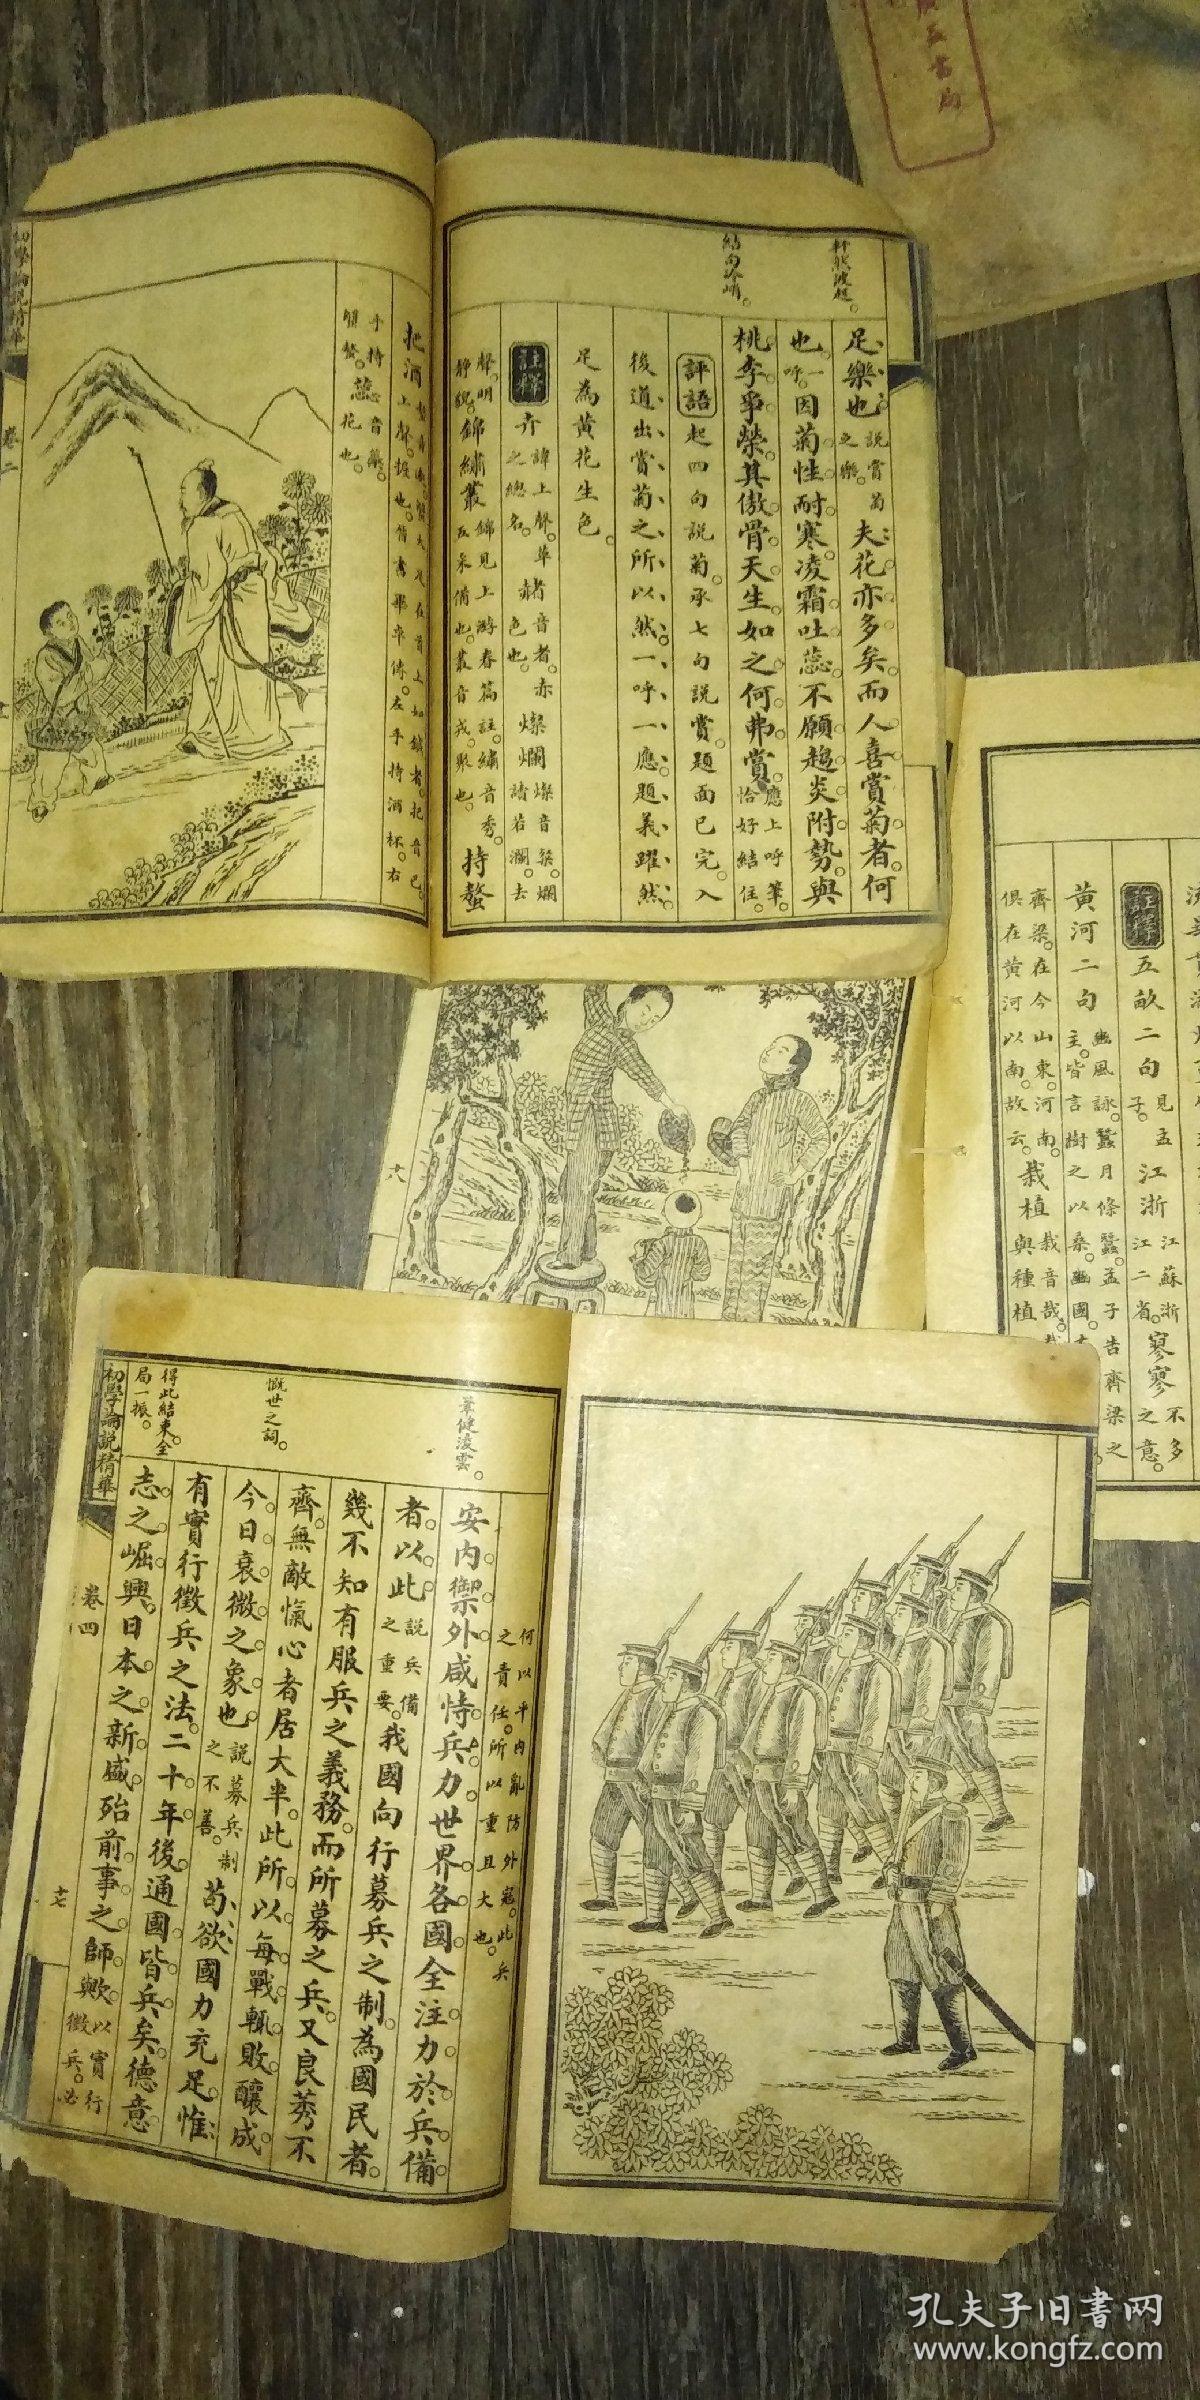 五書局
筆健凌雲。
結句冷峭。
足樂也說賞菊之樂。夫花亦多矣而人喜賞菊者何
也一呼。因菊性耐寒凌霜吐蕊不願趨炎附勢與
桃李爭榮其傲骨天生如之何弗賞應上呼筆。恰好結住。
評語 起四句說菊。承七句說賞。題面已完。入
後道出賞菊之所以然。一呼一應。題義躍然。
足為黃花生色。
註釋 卉諱上聲。草之總名。赭音者。赤色也。燦爛燦音粲。爛讀若瀾。去
聲。明靜貌。錦繡叢錦見上游春篇註。繡音秀。五采備也。叢音戎。聚也。持螯
把酒
手持蟹螯。蕊音藥。花也。
初學論說精華
卷二
流
註釋 五畝二句見孟子。江浙江蘇浙江二省。寥寥不多之意。
黃河二句
齊梁。在今山東。河南。俱在黃河以南。故云。栽植栽音哉。與種植
十八
何以平內亂防外寇。此兵之責任。所以重且大也。
筆健凌雲。
安內禦外咸恃兵力世界各國全注力於兵備
者以此說兵備之重要。我國向行募兵之制為國民者
幾不知有服兵之義務而所募之兵又良莠不
齊無敵愾心者居大半此所以每戰輒敗釀成
慨世之詞。
今日衰微之象也說募兵制之不善。苟欲國力充足惟
有實行徵兵之法二十年後通國皆兵矣德意
得此結束全局一振。
志之崛興日本之新盛殆前事之師歟以實行徵兵。必
初學論說精華
卷四
十七
孔夫子旧書网
www.kongfz.com